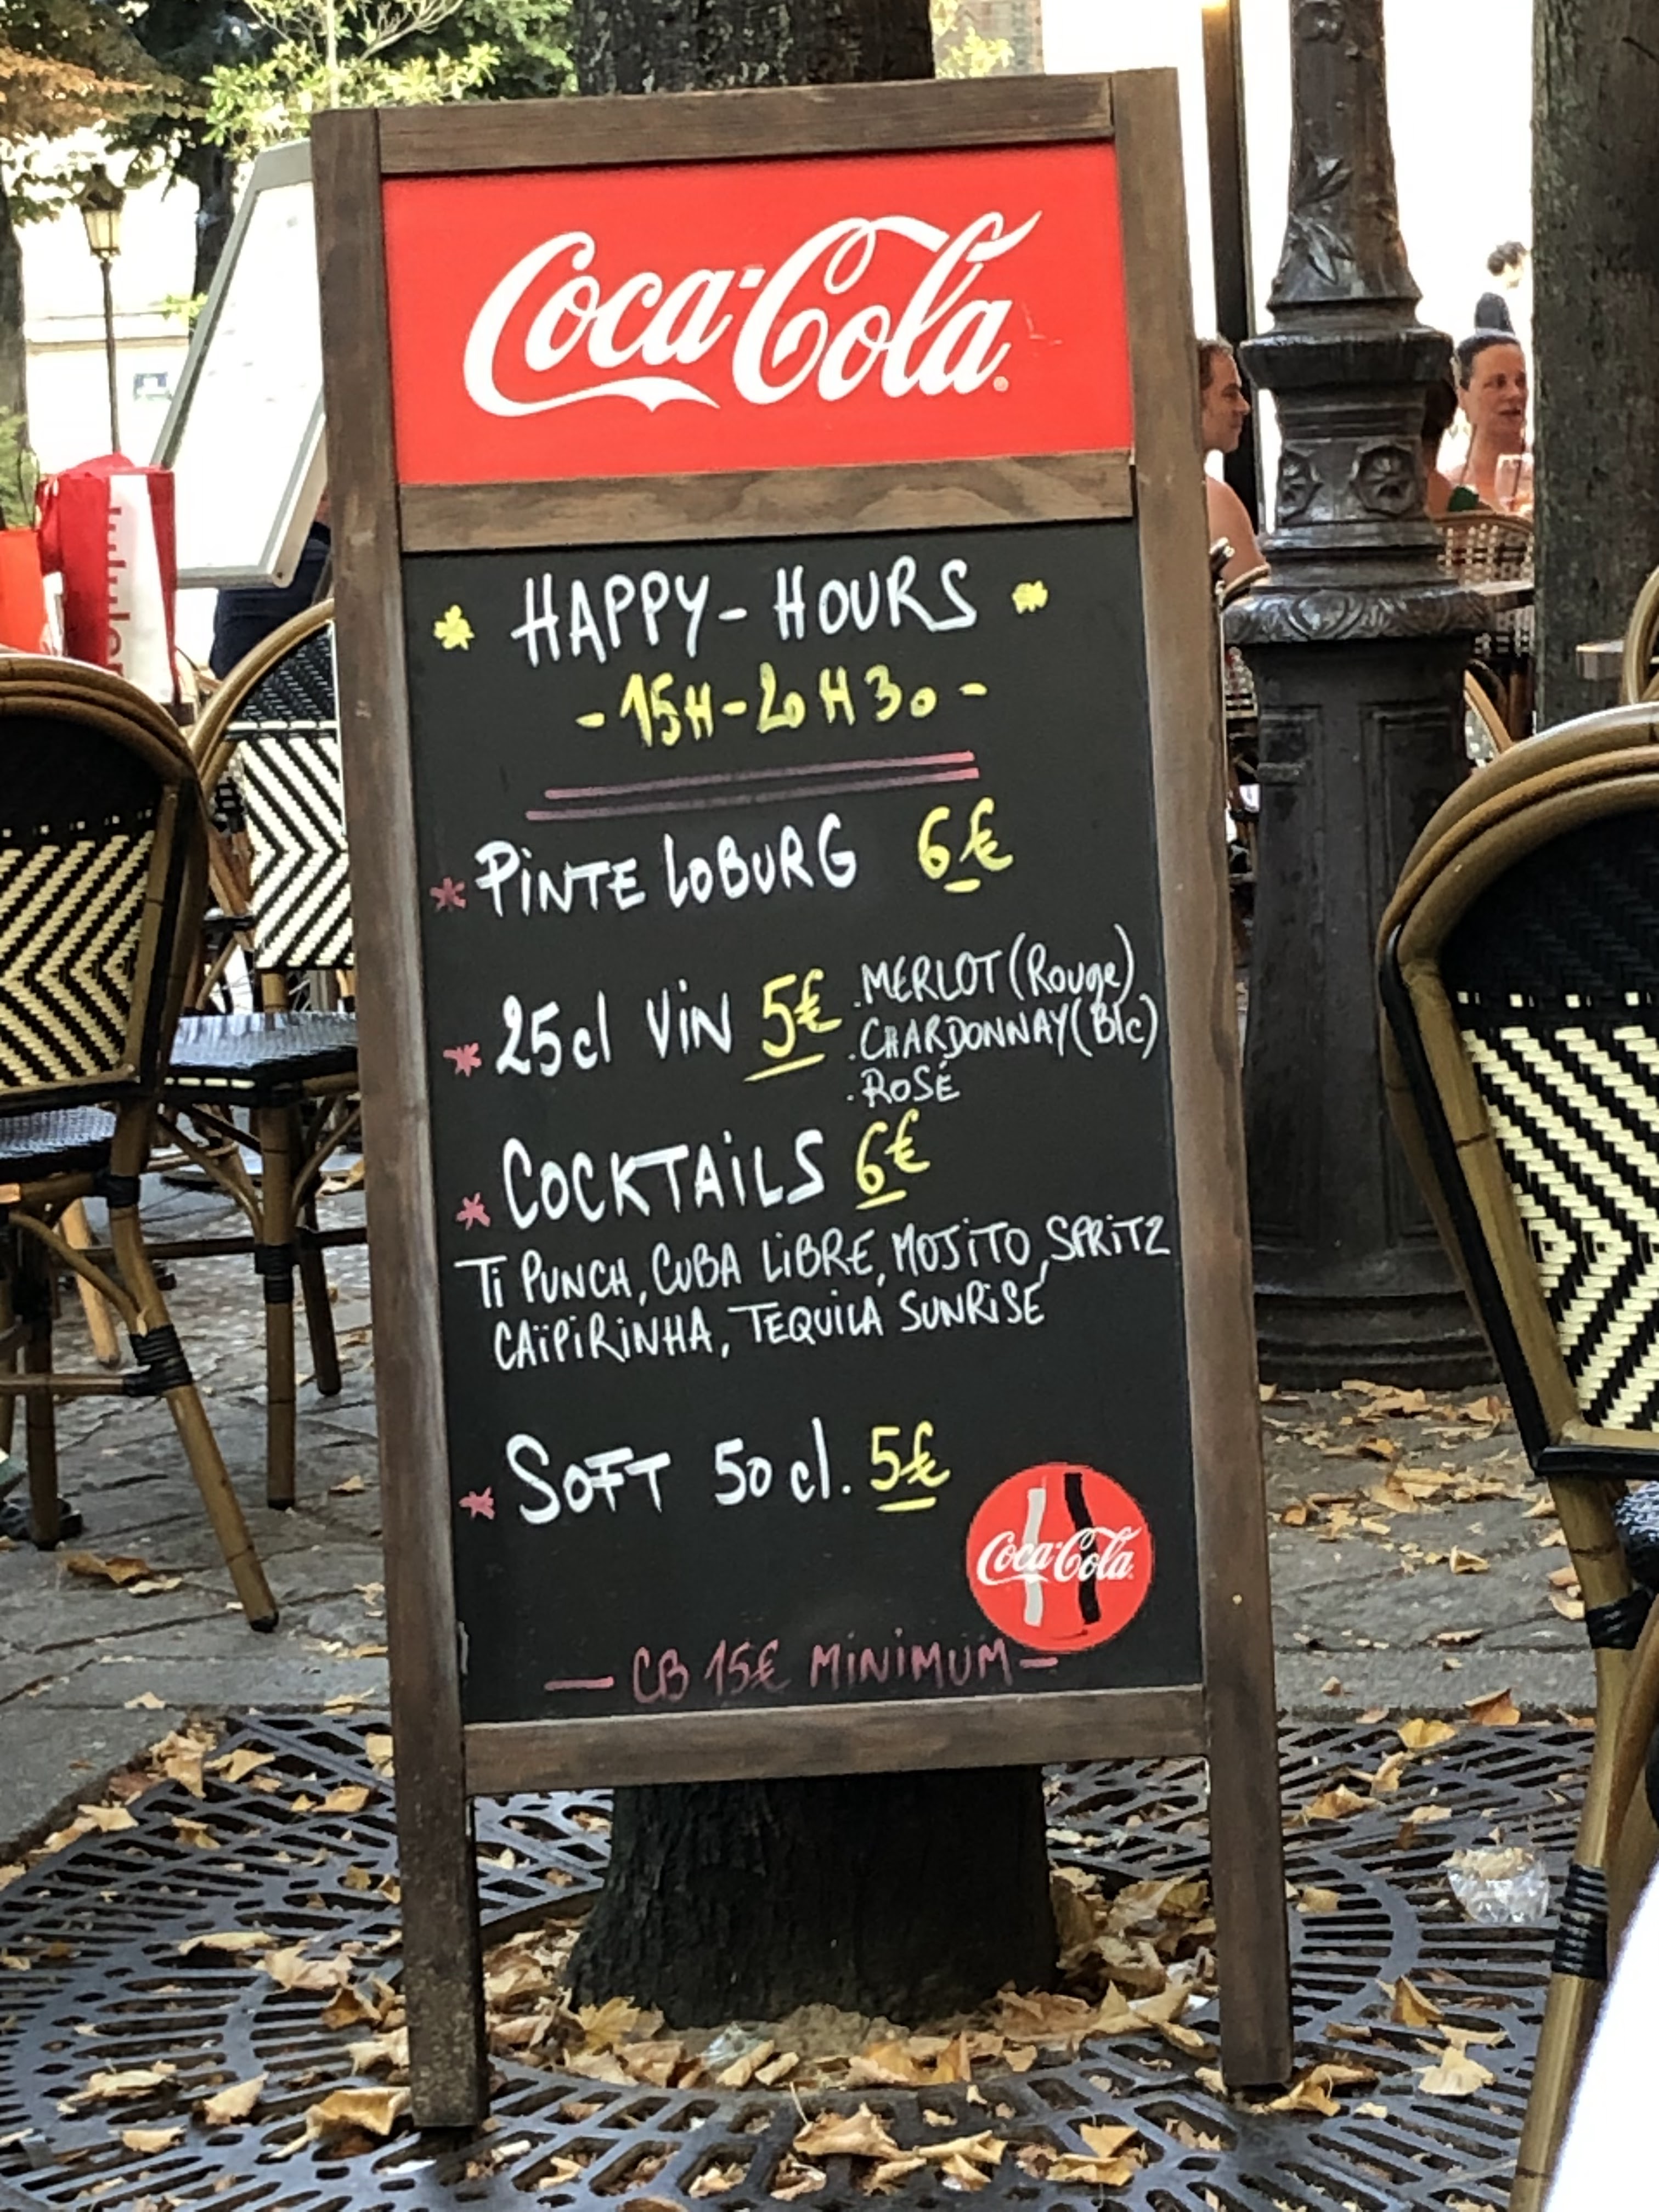 Coca-Cola
HAPPY - HOURS
- 15H - 20H30 -
* PINTE LOBURG 6€
* 25cl VIN 5€
. MERLOT (Rouge)
. CHARDONNAY (Blc)
. ROSÉ
* COCKTAILS 6€
Ti PUNCH, CUBA LIBRE, MOJITO, SPRITZ
CAÏPIRINHA, TEQUILA SUNRISE
* SOFT 50 cl. 5€
Coca-Cola
— CB 15€ MINIMUM —